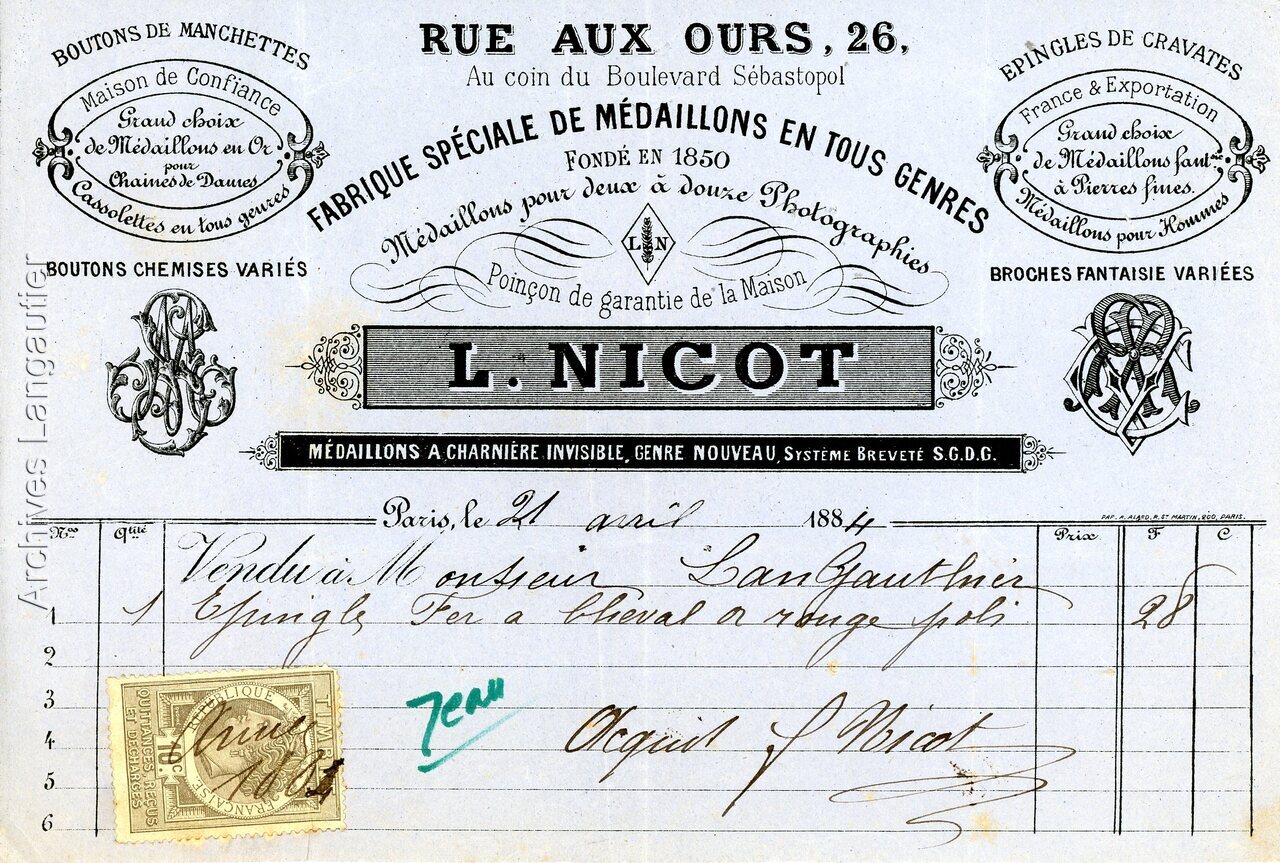 RUE AUX OURS, 26,
Au coin du Boulevard Sébastopol
FABRIQUE SPÉCIALE DE MÉDAILLONS EN TOUS GENRES
FONDÉ EN 1850
Médaillons pour deux à douze Photographies
L N
Poinçon de garantie de la Maison
BOUTONS DE MANCHETTES
Maison de Confiance
Grand choix
de Médaillons en Or
pour
Chaines de Dames
Cassolettes en tous genres
BOUTONS CHEMISES VARIÉS
EPINGLES DE CRAVATES
France & Exportation
Grand choix
de Médaillons fant.sie
à Pierres fines.
Médaillons pour Hommes
BROCHES FANTAISIE VARIÉES
L. NICOT
MÉDAILLONS A CHARNIÈRE INVISIBLE, GENRE NOUVEAU, SYSTÈME BREVETÉ S.G.D.G.
Paris, le 21 avril 1884
PAP. A. ALARD, R. ST MARTIN, 200, PARIS.
Nos Qtité Prix F C
Vendu à Monsieur LanGauthier
1 1 Epingle Fer a Cheval or rouge poli 28
2
3
4
5
6
Jean
Acquit Nicot
TIMBRE
QUITTANCES, REÇUS
ET DÉCHARGES
10c
RÉPUBLIQUE
FRANÇAISE
Archives Langautier